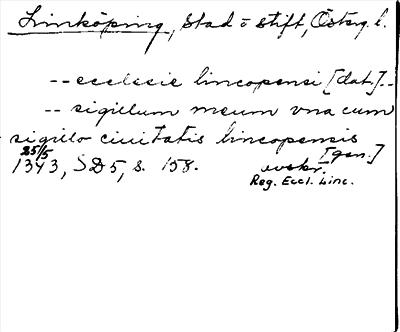 Linköping, Stad o stift, Österg. l.
-- ecclesie lincopensi [dat.] --
-- sigillum meum vna cum
sigillo ciuitatis lincopensis
[gen.]
25/5
1343, SD 5, s. 158. avskr.
Reg. Eccl. Linc.